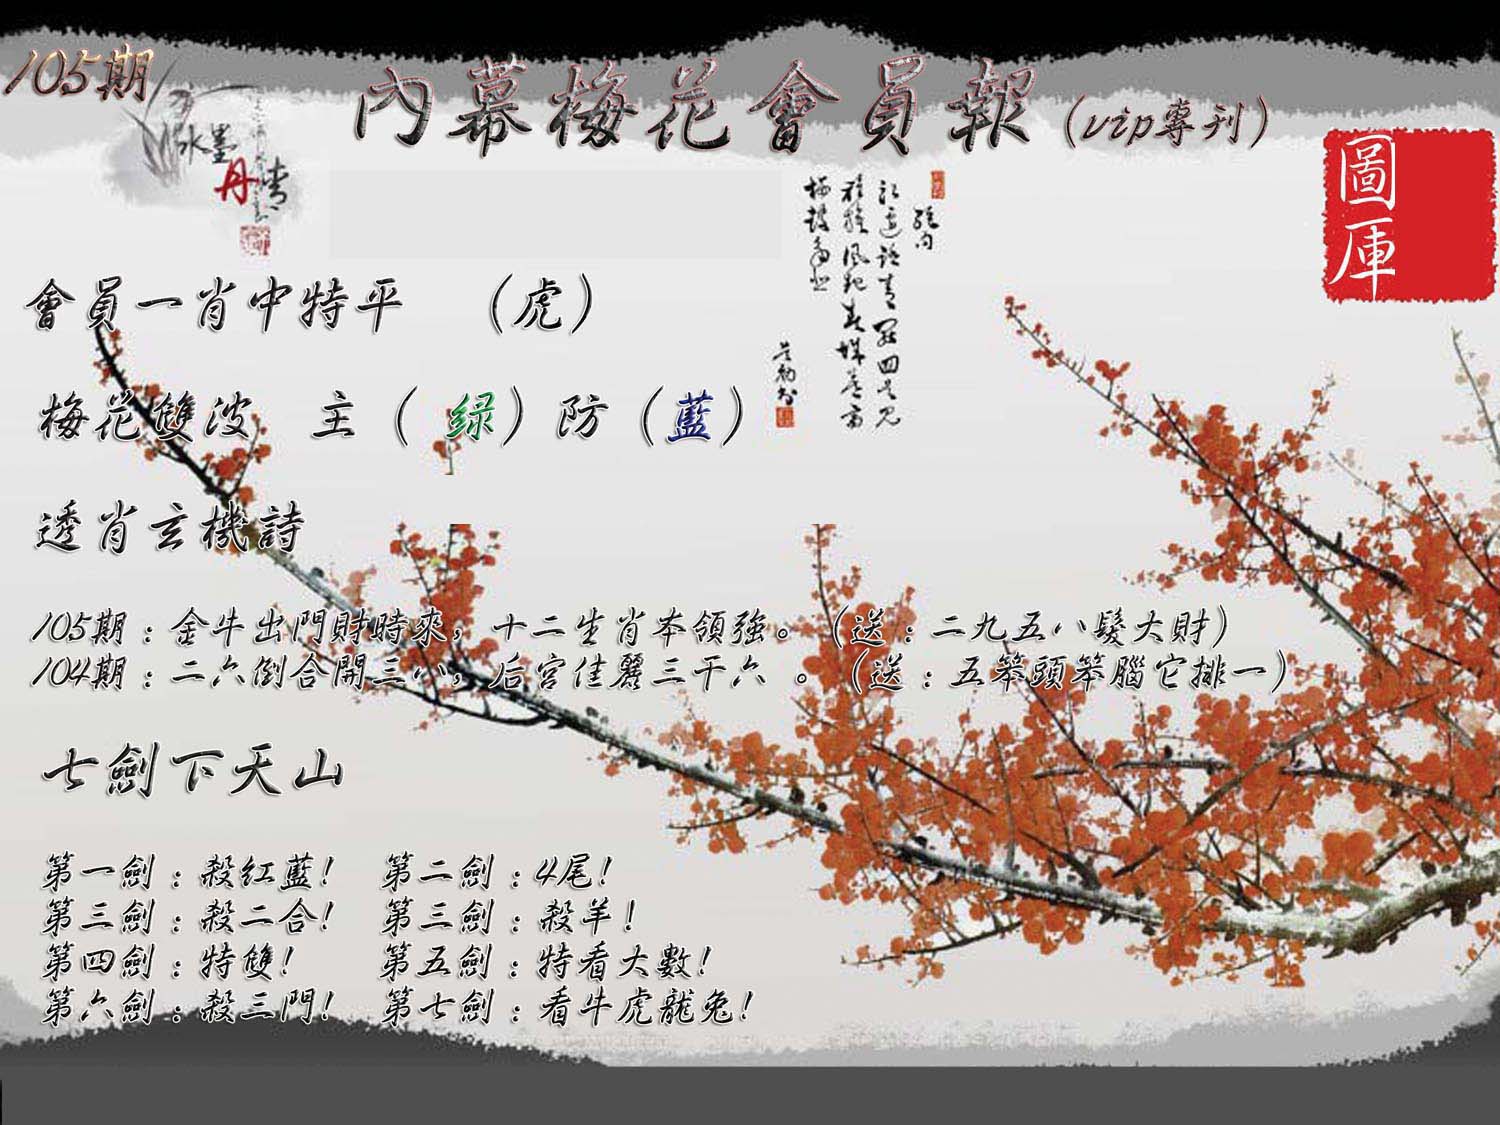 105期
內幕梅花會員報(vip專刊)
水墨
丹青
圖庫
會員一肖中特平 （虎）
梅花雙波 主（ 緑）防（藍）
透肖玄機詩
105期：金牛出門財時來，十二生肖本領強。（送：二九五八髮大財）
104期：二六倒合開三八，后宮佳麗三千六 。（送：五笨頭笨腦它排一）
七劍下天山
第一劍：殺紅藍! 第二劍：4尾!
第三劍：殺二合! 第三劍：殺羊!
第四劍：特雙! 第五劍：特看大數!
第六劍：殺三門! 第七劍：看牛虎龍兔!